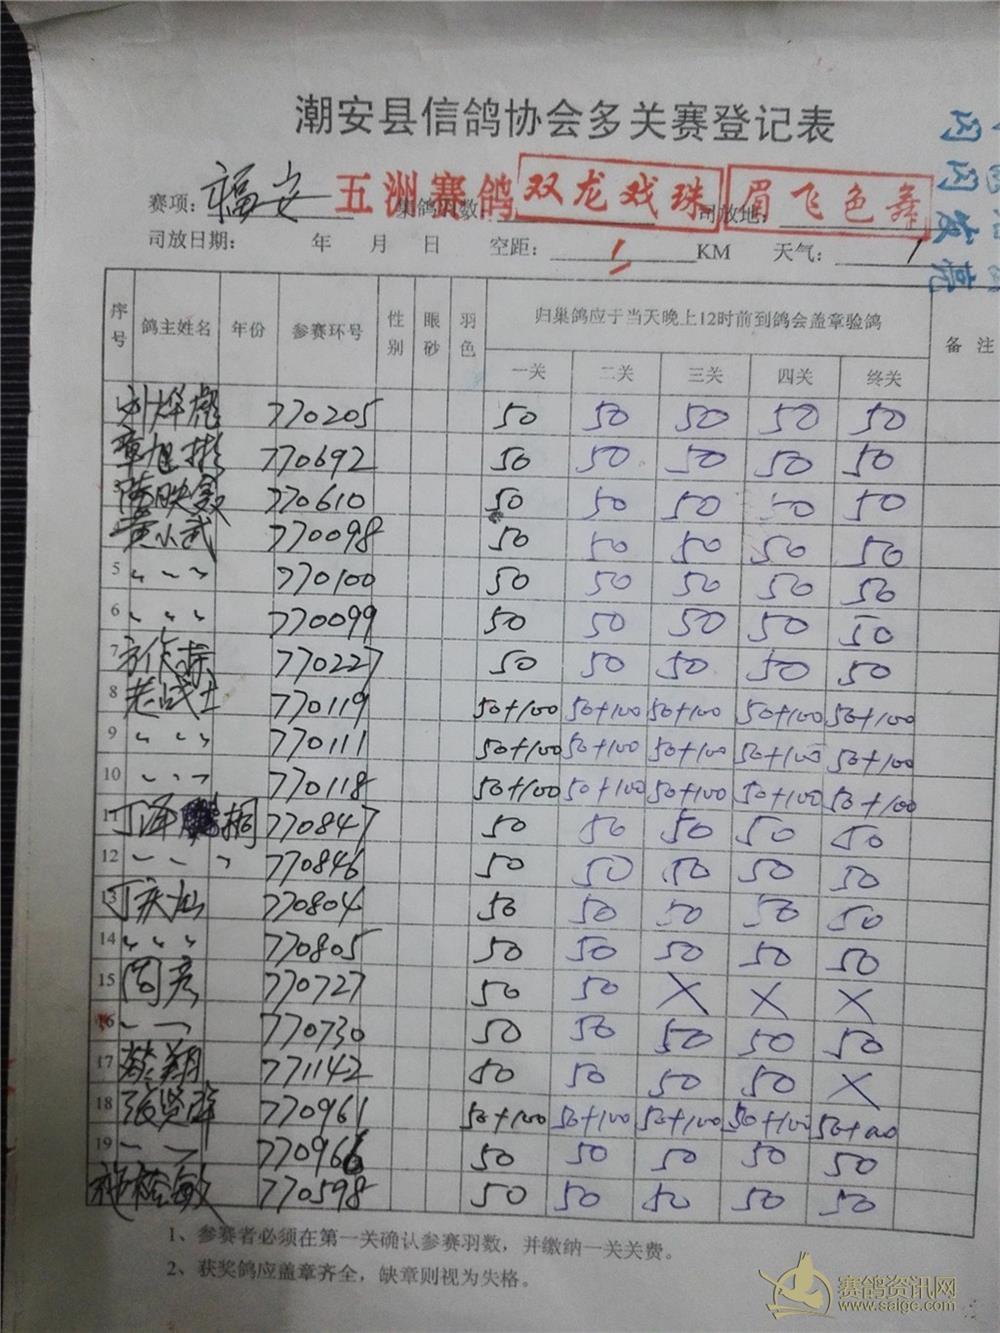 潮安县信鸽协会多关赛登记表
赛项: 福安 五洲赛鸽 集鸽羽数: 双龙戏珠 司放地: 眉飞色舞
司放日期: 年 月 日 空距: KM 天气:
序号 鸽主姓名 年份 参赛环号 性别 眼砂 羽色 归巢鸽应于当天晚上12时前到鸽会盖章验鸽 备注
一关 二关 三关 四关 终关
770205 50 50 50 50 50
章旭彬 770692 50 50 50 50 50
3 陈映 770610 50 50 50 50 50
黄小武 770098 50 50 50 50 50
5 〃 〃 〃 770100 50 50 50 50 50
6 〃 〃 〃 770099 50 50 50 50 50
7 方作 770227 50 50 50 50 50
8 老战士 770119 50+100 50+100 50+100 50+100 50+100
9 〃 〃 〃 770111 50+100 50+100 50+100 50+100 50+100
10 〃 〃 〃 770118 50+100 50+100 50+100 50+100 50+100
11 丁泽桐 770847 50 50 50 50 50
12 〃 〃 〃 770846 50 50 50 50 50
13 丁庆灿 770804 50 50 50 50 50
14 〃 〃 〃 770805 50 50 50 50 50
15 周彦 770727 50 50 X X X
16 〃 〃 770730 50 50 50 50 50
17 蔡翔 771142 50 50 50 50 X
18 张贤 770961 50+100 50+100 50+100 50+100 50+100
19 〃 〃 770966 50 50 50 50 50
敏 770598 50 50 50 50 50
1、参赛者必须在第一关确认参赛羽数，并缴纳一关关费。
2、获奖鸽应盖章齐全，缺章则视为失格。
赛鸽资讯网
www.saigc.com